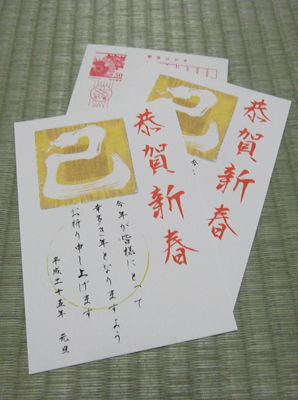 恭賀新春
巳
今年が皆様にとって
幸多き年となりますよう
お祈り申し上げます
平成二十五年 元旦
恭賀新春
巳
今
郵便はがき
50